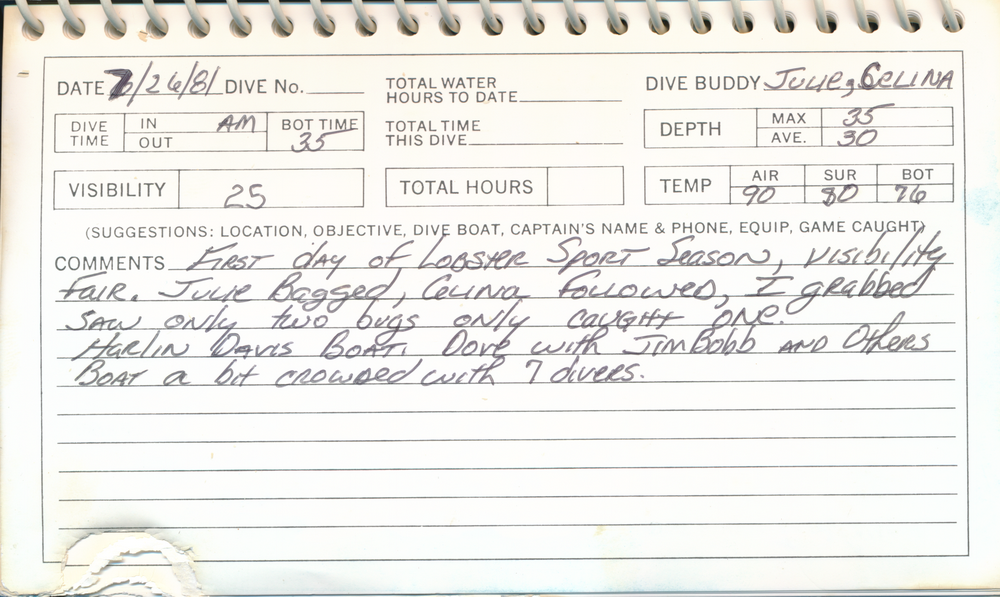 DATE 7/26/81 DIVE No. TOTAL WATER HOURS TO DATE DIVE BUDDY Julie, Celina
DIVE TIME IN AM OUT BOT TIME 35 TOTAL TIME THIS DIVE DEPTH MAX 35 AVE. 30
VISIBILITY 25 TOTAL HOURS TEMP AIR 90 SUR 80 BOT 76
(SUGGESTIONS: LOCATION, OBJECTIVE, DIVE BOAT, CAPTAIN'S NAME & PHONE, EQUIP, GAME CAUGHT)
COMMENTS First day of Lobster Sport Season, visibility
fair. Julie Bagged, Celina followed, I grabbed
saw only two bugs only caught one.
Harlin Davis Boat. Dove with Jim Bobb and Others
Boat a bit crowded with 7 divers.